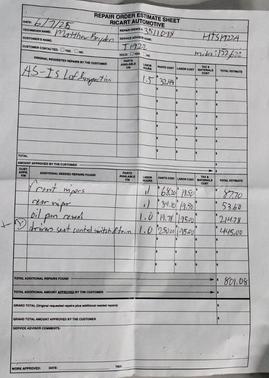 REPAIR ORDER ESTIMATE SHEET
RICART AUTOMOTIVE
DATE: 6/7/25
REPAIR ORDER #: 3511098
HTS1922A
TECHNICIAN NAME: Matthew
CUSTOMER'S NAME:
T1922
CUSTOMER CONTACTED:
ORIGINAL REQUESTED REPAIRS BY THE CUSTOMER
PARTS AVAILABLE Y/N
LABOR HOURS
PARTS COST
LABOR COST
TAX & MATERIALS COST
TOTAL ESTIMATE
AS-IS Lof Inspection 1.5
TOTAL
AMOUNT APPROVED BY THE CUSTOMER
CUST. APPR. Y/N
ADDITIONAL NEEDED REPAIRS FOUND
PARTS AVAILABLE Y/N
LABOR HOURS
PARTS COST
LABOR COST
TAX & MATERIALS COST
TOTAL ESTIMATE
Front wipers .1 68.20 19.50 87.70
rear wiper .1 34.10 19.50 53.60
oil pan reseal 1.0 19.78 195.00 214.78
driver seat control switch 1.0 250.00 195.00 445.00
TOTAL ADDITIONAL REPAIRS FOUND $ 801.08
TOTAL ADDITIONAL AMOUNT APPROVED BY THE CUSTOMER
GRAND TOTAL (Original requested repairs plus additional needed repairs)
GRAND TOTAL AMOUNT APPROVED BY THE CUSTOMER
SERVICE ADVISOR COMMENTS:
WORK APPROVED: DATE